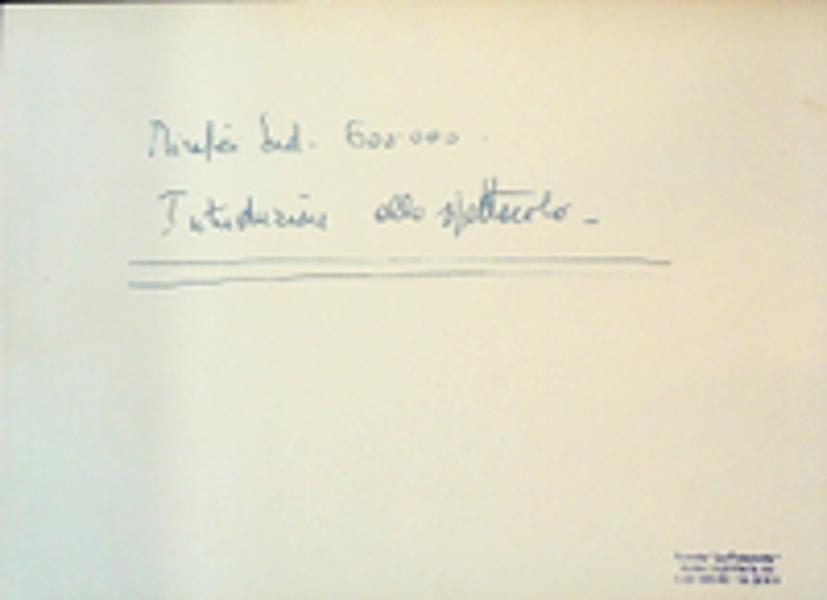 Mirafiori Sud. 600.000.
Introduzione allo spettacolo -